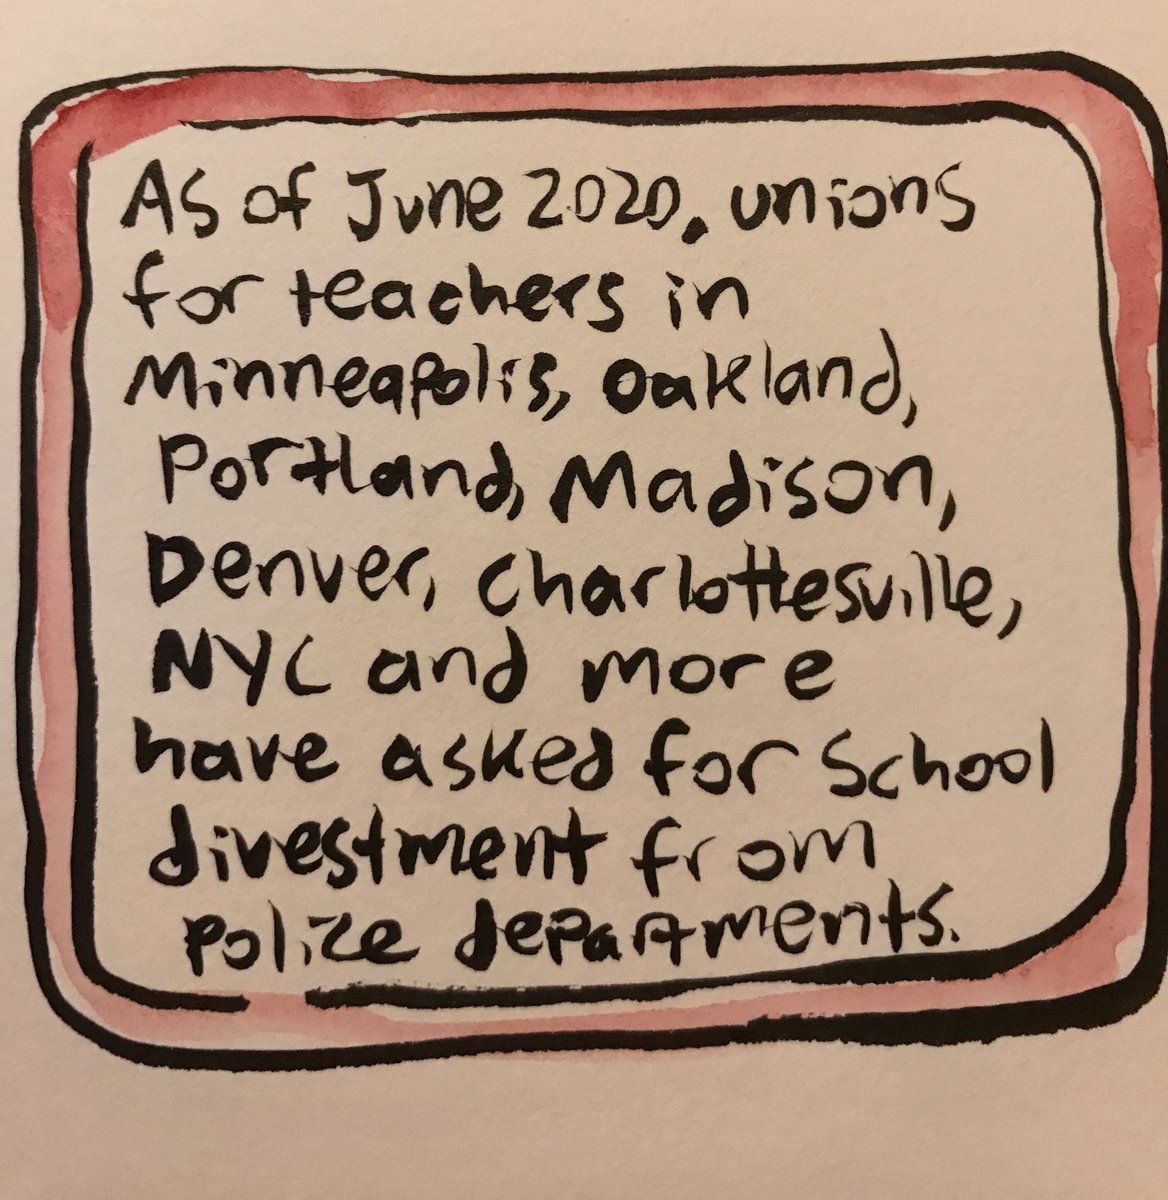 As of June 2020, unions
for teachers in
Minneapolis, Oakland,
Portland, Madison,
Denver, Charlottesville,
NYC and more
have asked for School
divestment from
police departments.